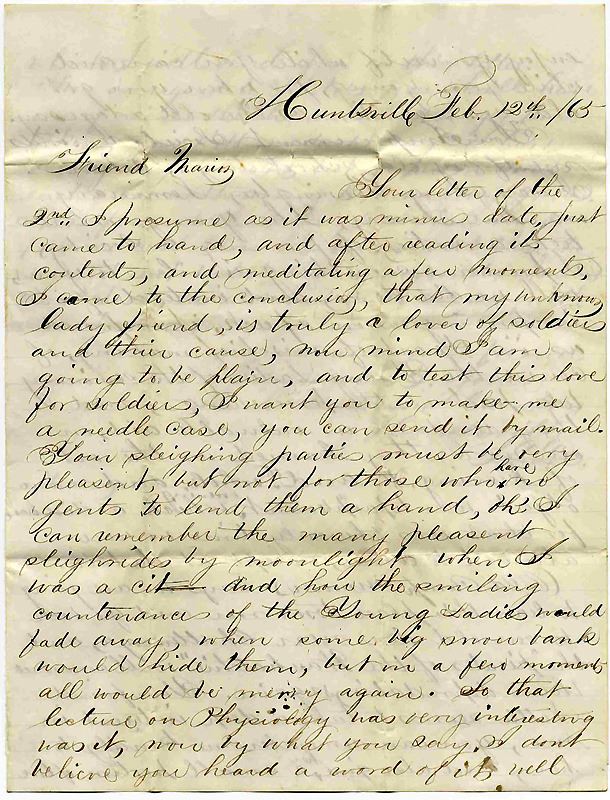 Huntsville Feb. 12th /65
Friend Marion,
Your letter of the
2nd I presume as it was minus date, just
came to hand, and after reading its
contents, and meditating a few moments,
I came to the conclusion, that my unknown
lady friend, is truly a lover of soldiers
and thier cause, now mind I am
going to be plain, and to test this love
for soldiers, I want you to make me
a needle case, you can send it by mail.
Your sleighing parties must be very
pleasent, but not for those who have no
gents to lend them a hand, Oh I
can remember the many pleasent
sleighrides by moonlight when I
was a cit and how the smiling
countenances of the Young Ladies would
fade away, when some big snow bank
would hide them, but in a few moments
all would be merry again. So that
lecture on Physiology was very interesting
was it, now by what you say, I dont
believe you heard a word of it, well